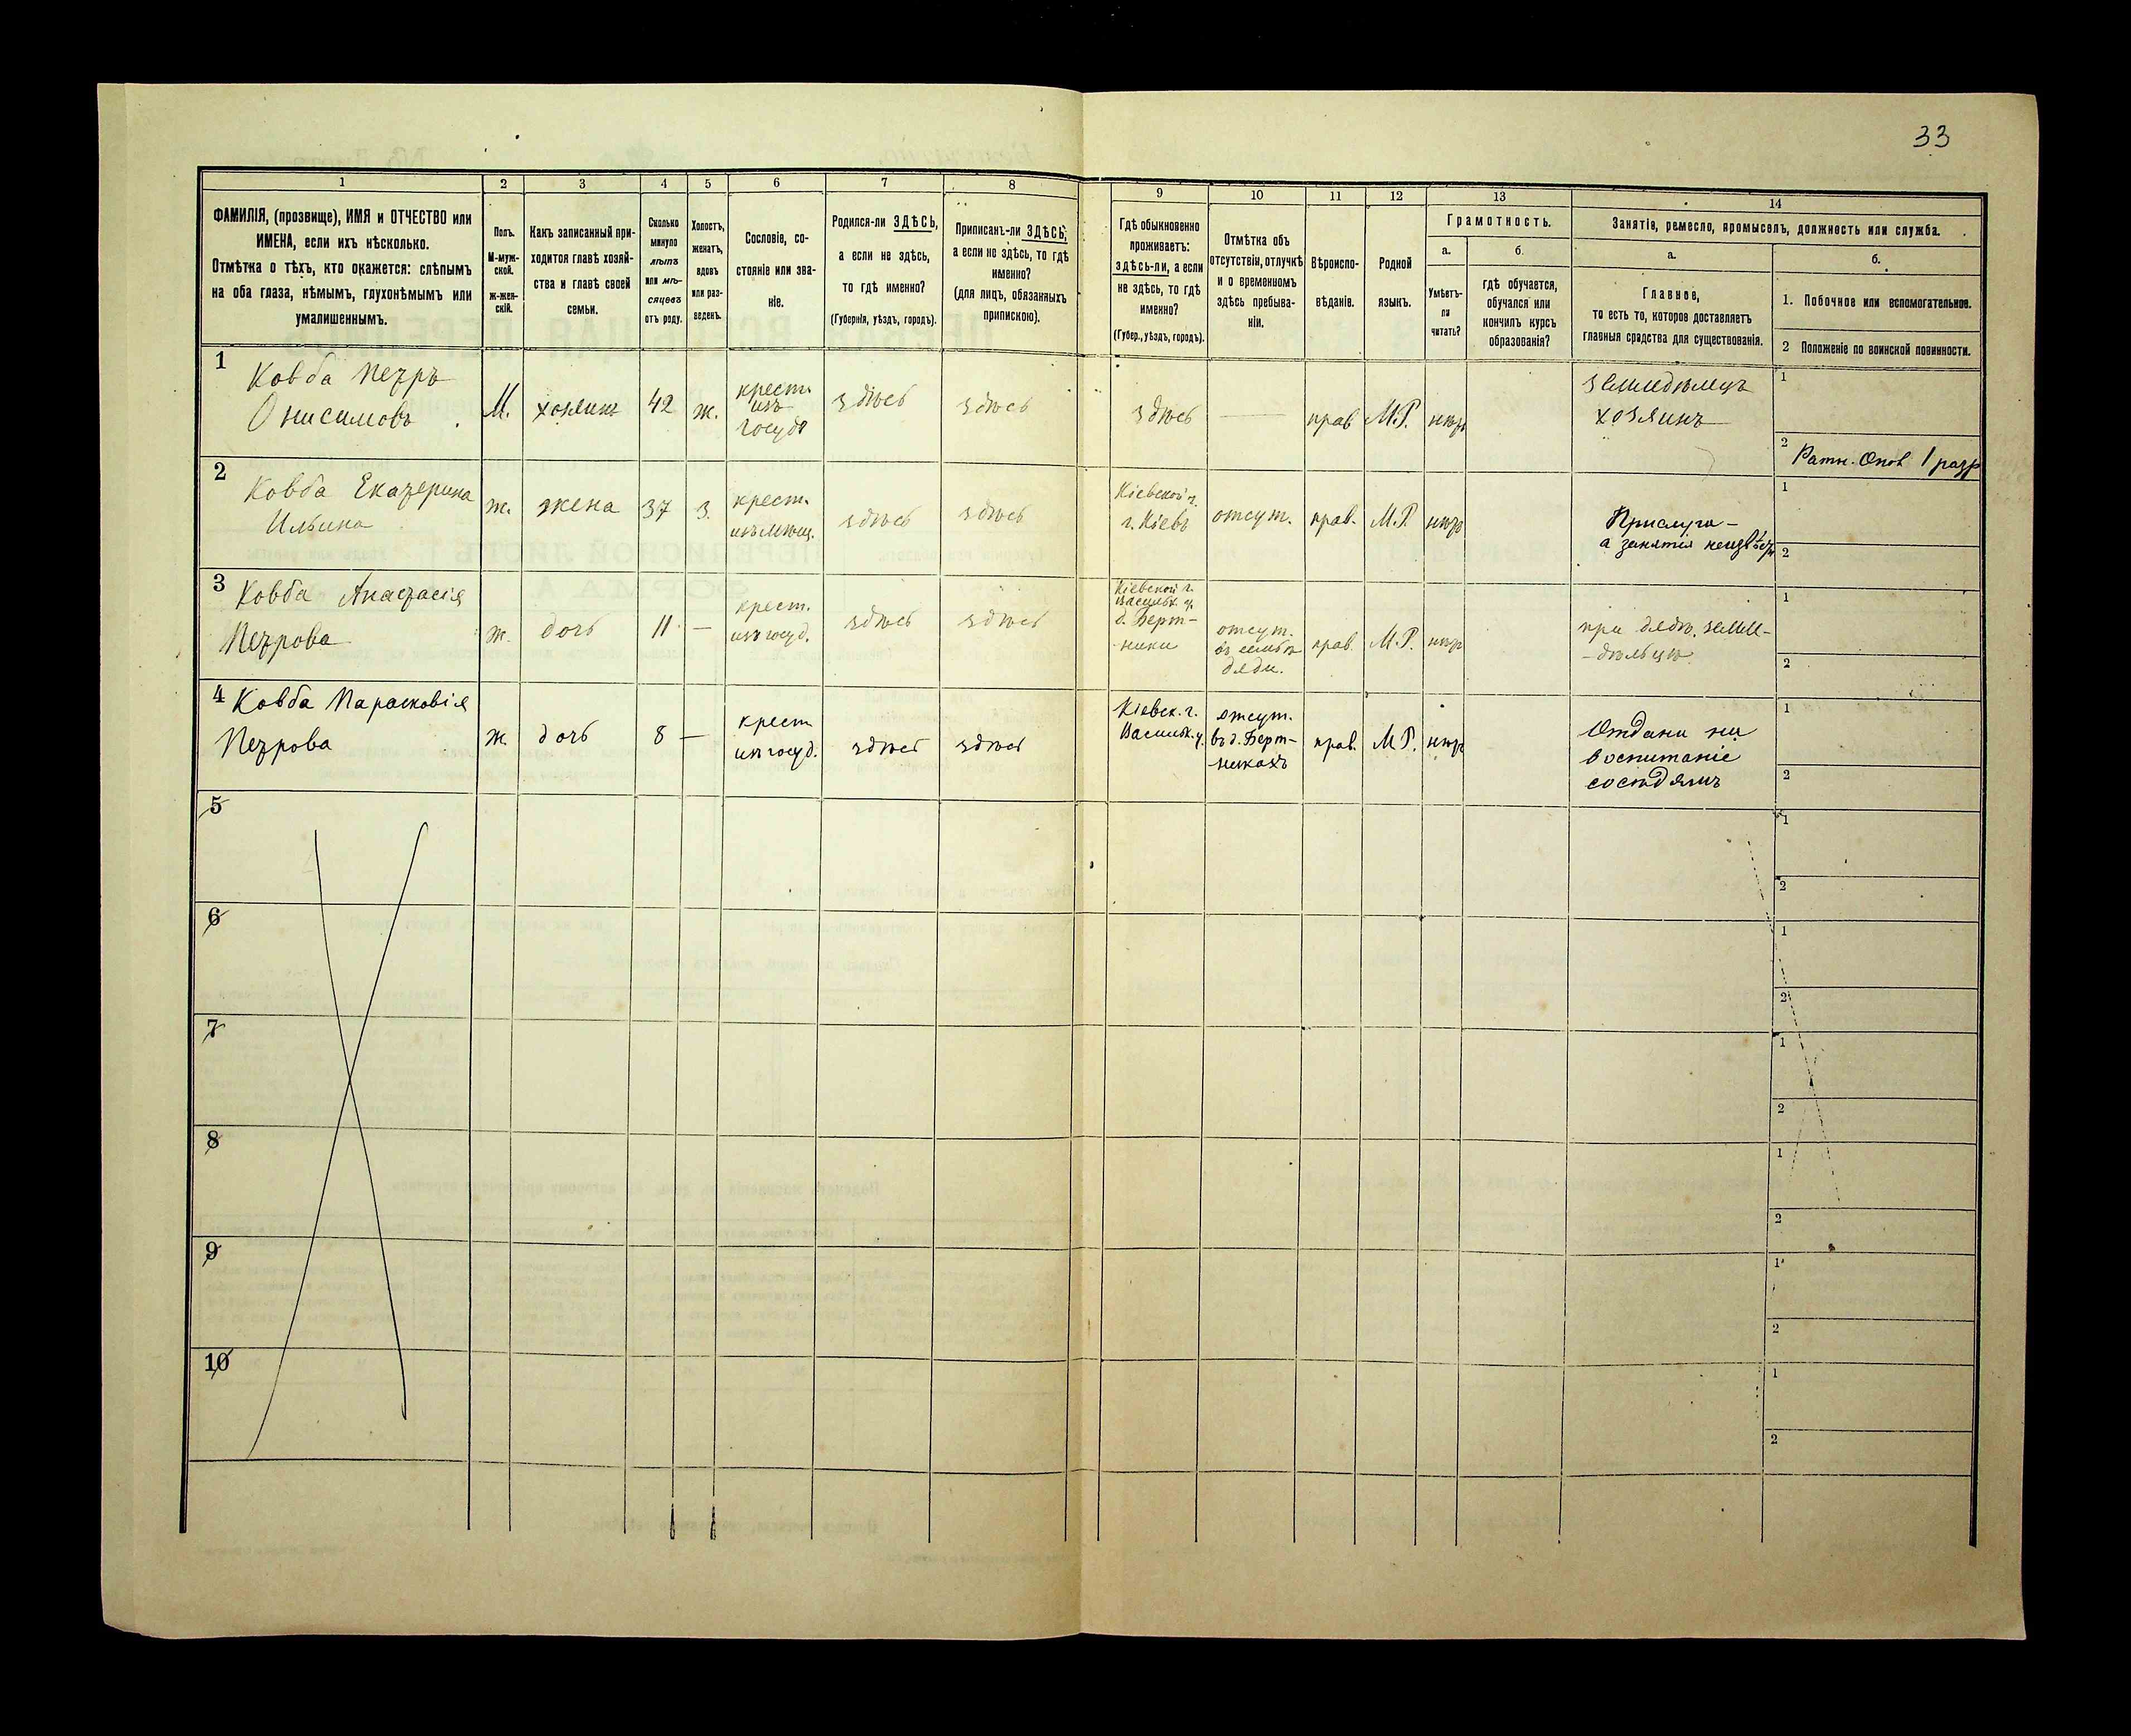 33
1
2
3
4
5
6
7
8
9
10
11
12
13
14
ФАМИЛІЯ, (прозвище), ИМЯ и ОТЧЕСТВО или
ИМЕНА, если ихъ нѣсколько.
Отмѣтка о тѣхъ, кто окажется: слѣпымъ
на оба глаза, нѣмымъ, глухонѣмымъ или
умалишеннымъ.
Полъ.
М-муж-
ской.
ж-жен-
скій.
Какъ записанный при-
ходится главѣ хозяй-
ства и главѣ своей
семьи.
Сколько
минуло
лѣтъ
или мѣ-
сяцевъ
отъ роду.
Холостъ,
женатъ,
вдовъ
или раз-
веденъ.
Сословіе, со-
стояніе или зва-
ніе.
Родился-ли ЗДѢСЬ,
а если не здѣсь,
то гдѣ именно?
(Губернія, уѣздъ, городъ).
Приписанъ-ли ЗДѢСЬ,
а если не здѣсь, то гдѣ
именно?
(для лицъ, обязанныхъ
припискою).
Гдѣ обыкновенно
проживаетъ:
здѣсь-ли, а если
не здѣсь, то гдѣ
именно?
(Губер., уѣздъ, городъ).
Отмѣтка объ
отсутствіи, отлучкѣ
и о временномъ
здѣсь пребыва-
ніи.
Вѣроиспо-
вѣданіе.
Родной
языкъ.
Грамотность.
а.
Умѣетъ-
ли
читать?
б.
гдѣ обучается,
обучался или
кончилъ курсъ
образованія?
Занятія, ремесло, промыселъ, должность или служба.
а.
Главное,
то есть то, которое доставляетъ
главныя средства для существованія.
б.
1. Побочное или вспомогательное.
2 Положеніе по воинской повинности.
1
Ковба Петръ
Онисимовъ
М.
хозяинъ
42
ж.
крест.
изъ
госуд
здѣсь
здѣсь
здѣсь
—
прав
М.Р.
нѣтъ
землидѣлецъ
хозяинъ
1
2 Ратн. Опол 1 разр
2
Ковба Екатерина
Ильина
ж.
жена
37
З.
крест.
изъ мѣщ.
здѣсь
здѣсь
Кіевской г.
г. Кіевъ
отсут.
прав.
М.Р.
нѣтъ
Прислуга -
а занятія неизвѣст
1
2
3
Ковба Анастасія
Петрова
ж.
дочь
11
—
крест.
изъ госуд.
здѣсь
здѣсь
Кіевской г.
Васильк. у.
д. Берт-
ники
отсут.
въ семьѣ
дяди.
прав.
М.Р.
нѣтъ
при дядѣ, земле-
-дѣльцѣ
1
2
4 Ковба Парасковія
Петрова
ж.
дочь
8
—
крест
изъ госуд.
здѣсь
здѣсь
Кіевск. г.
Васильк. у.
отсут.
въ д. Берт-
никахъ
прав.
М.Р.
нѣтъ
Отдана на
воспитаніе
сосѣдямъ
1
2
5
1
2
6
1
2
7
1
2
8
1
2
9
1
2
10
1
2